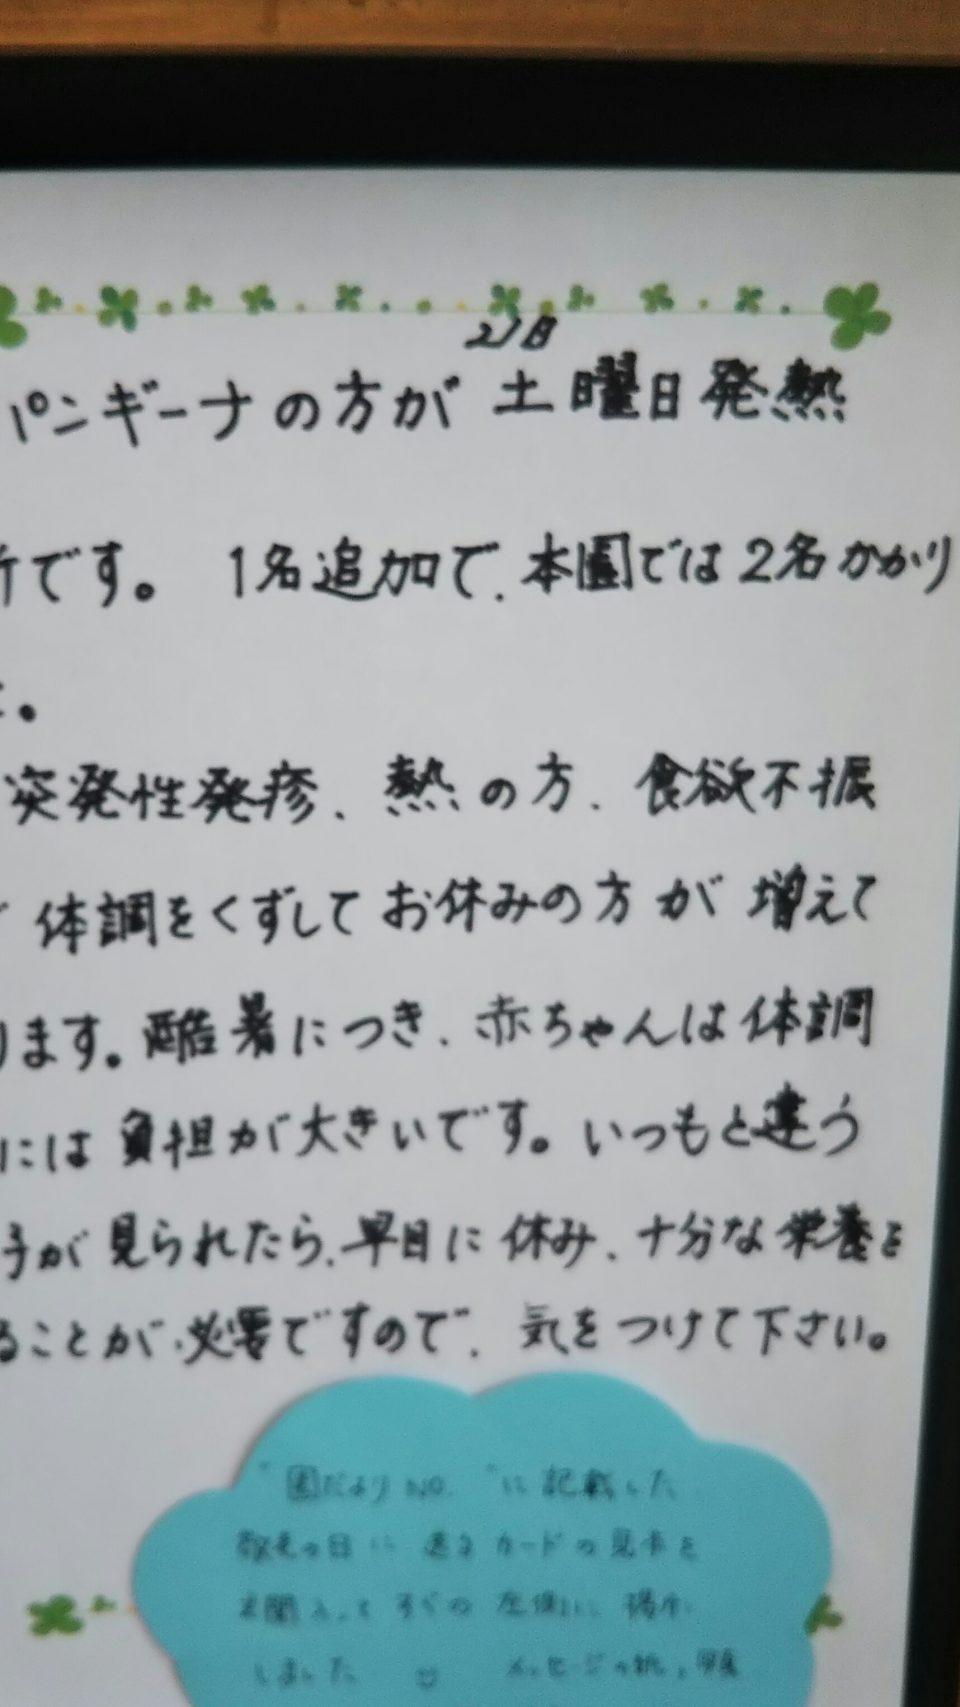 21日
パンギーナの方が土曜日発熱
です。1名追加で、本園では2名かかり
。
突発性発疹、熱の方、食欲不振
体調をくずしてお休みの方が増えて
ります。酷暑につき、赤ちゃんは体調
には負担が大きいです。いつもと違う
子が見られたら、早目に休み、十分な栄養と
ることが必要ですので、気をつけて下さい。
"園だよりNO. "に記載した
敬老の日に送るカードの見本を
玄関入ってすぐの左側に掲示
しました メッセージの紙